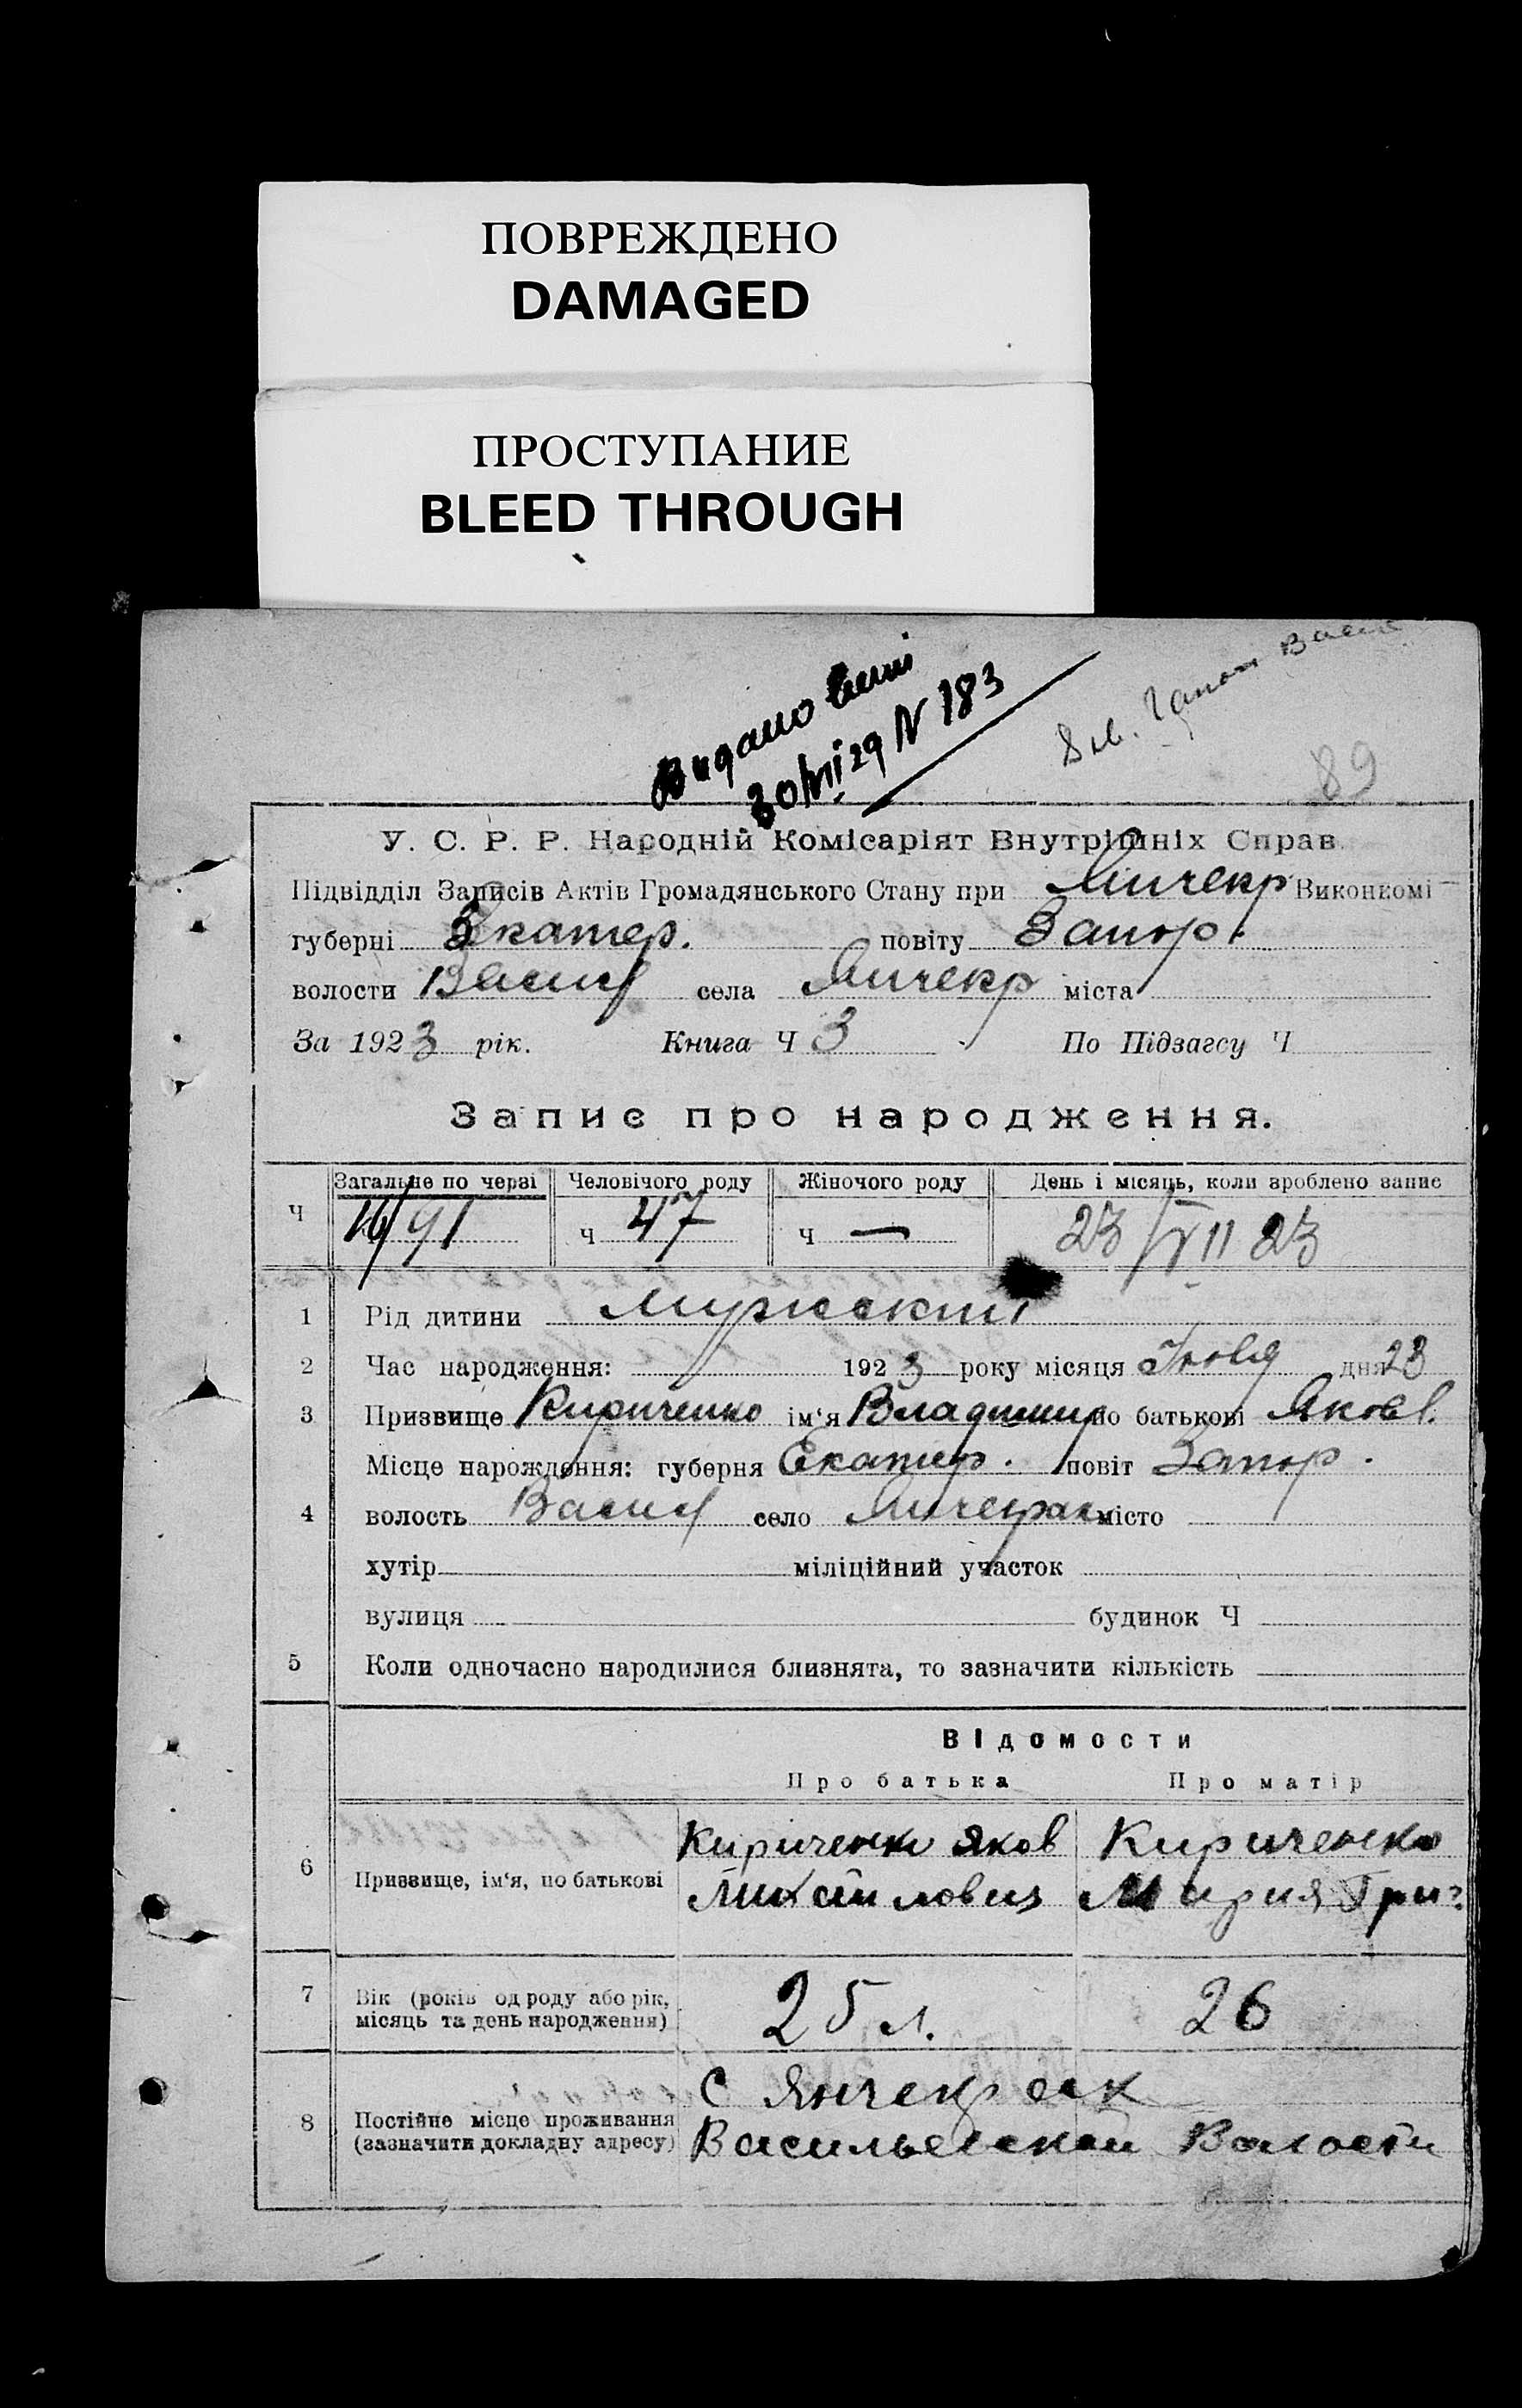 ПОВРЕЖДЕНО
DAMAGED
ПРОСТУПАНИЕ
BLEED THROUGH
Видано
30/VII 29 N 183
89
У. С. Р. Р. Народній Комісаріят Внутрішніх Справ.
Підвідділ Записів Актів Громадянського Стану при Янчекр Виконкомі
губерні Екатер. повіту Запор.
волости Васил села Янчекр міста
За 1923 рік. Книга Ч 3 По Підзагсу Ч
Запис про народження.
Загальне по черзі Человічого роду Жіночого роду День і місяць, коли зроблено запис
Ч 91 Ч 47 Ч — 23/VII 23
1 Рід дитини Мужский
2 Час народження: 1923 року місяця дня 23
3 Призвище Кириченко ім‘я Владимир по батькові Яковл.
Місце нарождення: губерня Екатер. повіт Запор.
4 волость Васил село Янчекрак місто
хутір міліційний участок
вулиця будинок Ч
5 Коли одночасно народилися близнята, то зазначити кількість
Відомости
Про батька Про матір
Кириченко Яков Кириченко
6 Призвище, ім‘я, по батькові Михайлович Мария Григ.
7 Вік (років од роду або рік, місяць та день народження) 25 л. 26
С Янчекрак
8 Постійне місце проживання (зазначити докладну адресу) Васильевской Волости